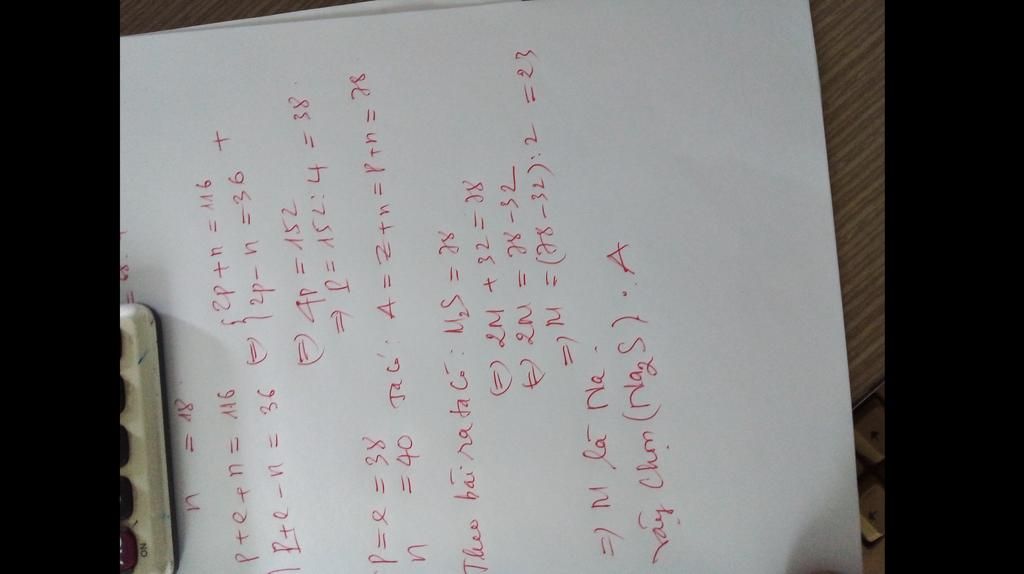 n = 18
p+e+n = 116 (=) { 2p+n = 116
p+e-n = 36 { 2p-n = 36 +
(=) 4p = 152
=) p = 152:4 = 38
p=e = 38 Ta có: A = Z+n = p+n = 78
n = 40
Theo bài ra ta có: M₂S = 78
(=) 2M + 32 = 78
(=) 2M = 78-32
=) M = (78-32):2 = 23
=) M là Na.
Vậy chọn (Na₂S) : A